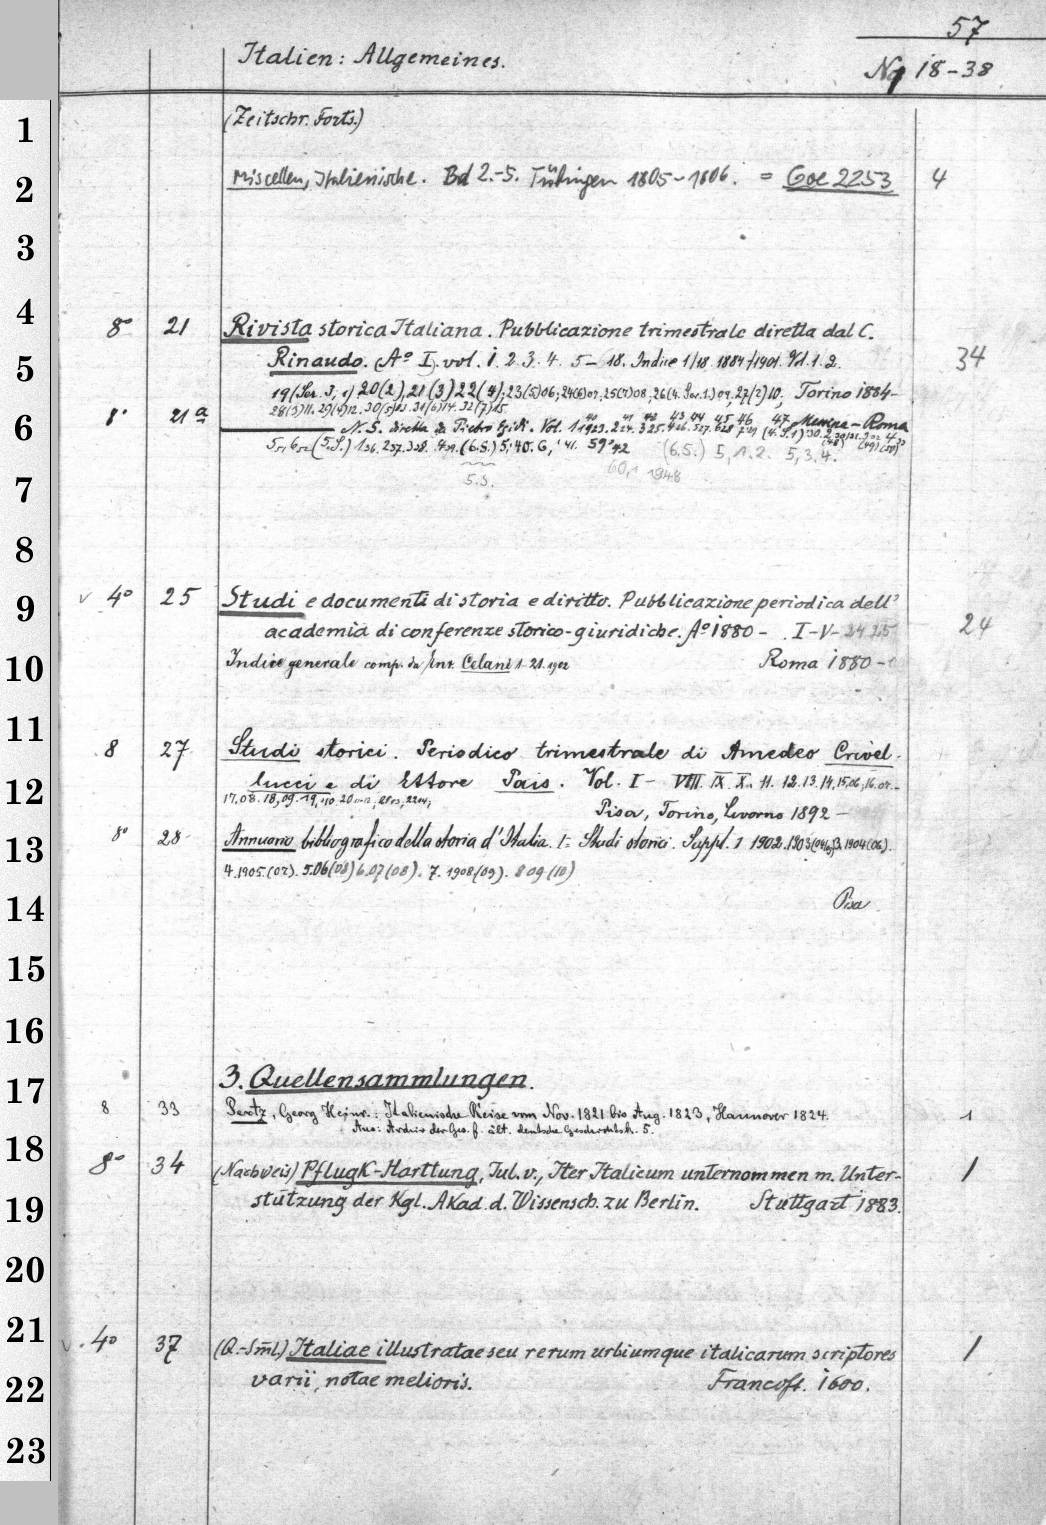 57
Italien: Allgemeines.
No 18-38
1 (Zeitschr. Forts.)
2 Miscellen, Italienische. Bd 2.-5. Tübingen 1805-1806. = Goe 2253 4
3
4 8° 21 Rivista storica Italiana. Pubblicazione trimestrale diretta dal C.
5 Rinaudo. (A° I). vol. 1. 2. 3. 4. 5- 18. Indice 1/18 1884/1901. Vol. 1. 2. 34
19 (Ser. 3, 1) 20(2), 21(3) 22(4); 23(5)06; 24(6)07, 25(7)08, 26(4. Ser. 1.) 09, 27(2)10; Torino 1884-
28(3)11. 29(4)12. 30(5)13. 31(6)14. 32(7)15
6 8° 21a N. S. diretta da Pietro Egidi. Vol. 1 1923. Messina-Roma
(5.S.) 1 36. 2 37. 3 38. 4 39. (6.S.) 5, 40. 6, '41. 59 '42 (6.S.) 5, 1. 2. 5, 3. 4.
7 5.S. 60, 1948
8
9 v 4° 25 Studi e documenti di storia e diritto. Pubblicazione periodica dell'
academia di conferenze storico-giuridiche. A° 1880 - I-V- 24 25 24
10 Indice generale comp. da Celani 1-21. 1902 Roma 1880 -
11 8 27 Studi storici. Periodico trimestrale di Amedeo Crivel-
12 lucci e di Ettore Pais. Vol. I- VIII. IX. X. 11. 12. 13. 14, 15, 06; 16. 07. -
17. 08. 18, 09. 19, '10. 20 21 22
Pisa, Torino, Livorno 1892 -
13 8° 28 Annuario bibliografico della storia d'Italia. I = Studi storici. Suppl. 1 1902. 1903 3. 1904(06).
4. 1905. (07). 5.06(08) 6.07(08). 7. 1908(09). 8 09 (10)
14 Pisa
15
16
17 3. Quellensammlungen.
8 33 Pertz, Georg Heinr.: Italienische Reise vom Nov. 1821 bis Aug. 1823, Hannover 1824. 1
Aus: Archiv der Ges. f. ält. deutsche Geschichtsk. 5.
18 8° 34 (Nachweis) Pflugk-Harttung, Jul. v., Iter Italicum unternommen m. Unter- 1
19 stützung der Kgl. Akad. d. Wissensch. zu Berlin. Stuttgart 1883.
20
21 v. 4° 37 (Q.-Sml.) Italiae illustratae seu rerum urbiumque italicarum scriptores 1
22 varii, notae melioris. Francof. 1600.
23